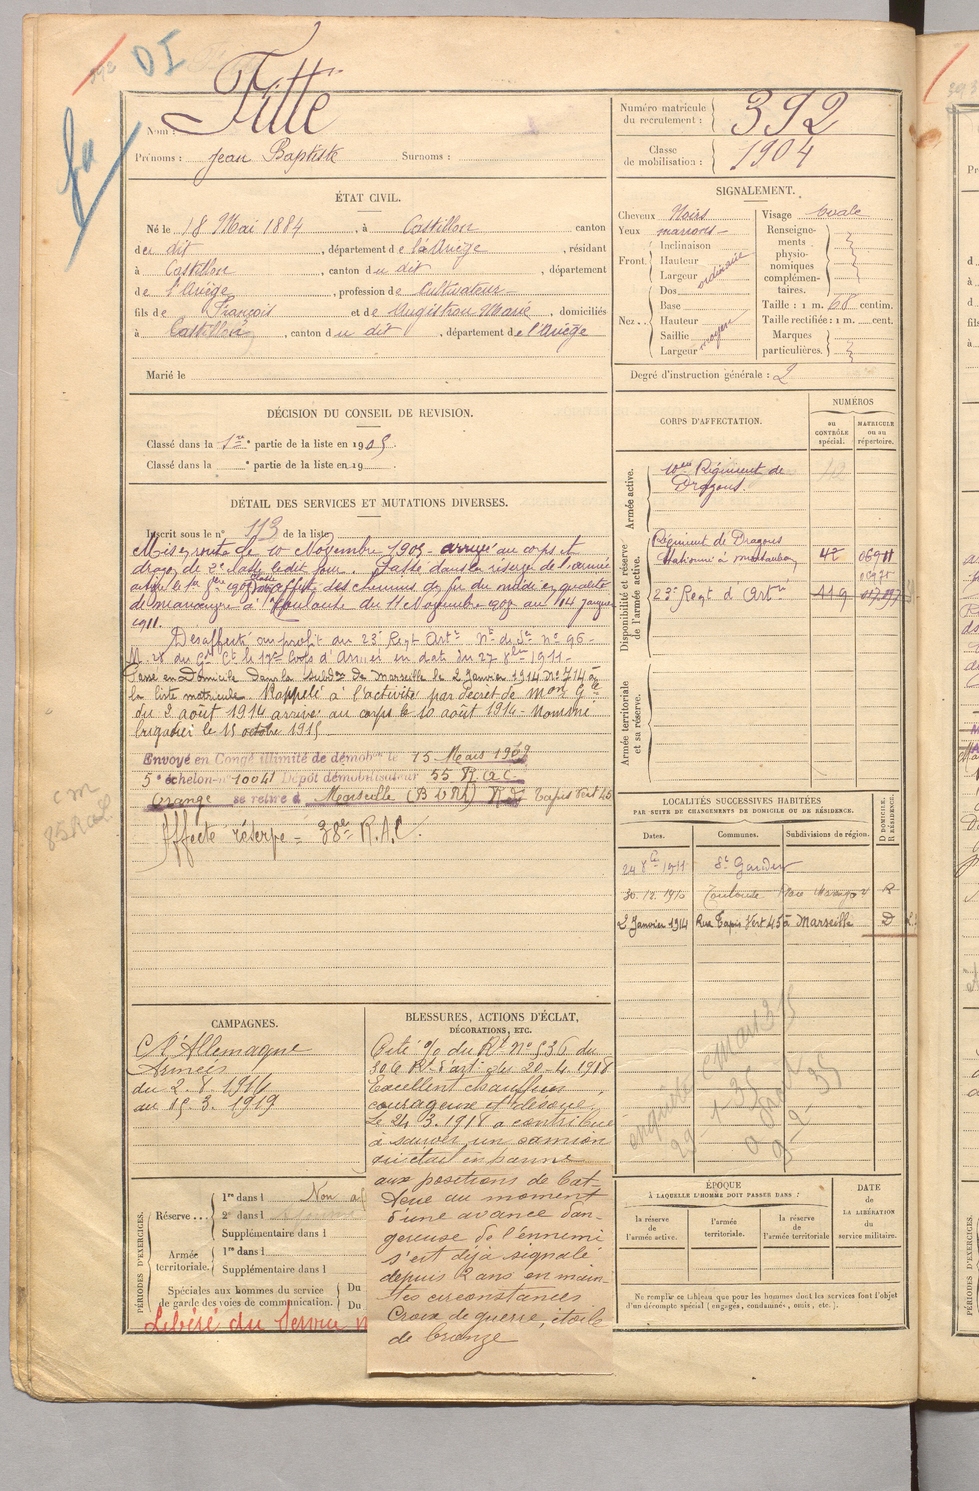 392
DI
fa
Nom : Fitte
Prénoms : Jean Baptiste Surnoms :
Numéro matricule du recrutement : 392
Classe de mobilisation : 1904
ÉTAT CIVIL.
Né le 18 Mai 1884, à Castillon canton
de dit, département de l'Ariège, résidant
à Castillon, canton du dit, département
de l'Ariège, profession de Cultivateur
fils de François et de Augistrou Marie, domiciliés
à Castillon, canton du dit, département de l'Ariège
Marié le
SIGNALEMENT.
Cheveux Noirs
Yeux marrons
Front Inclinaison
Hauteur
Largeur
ordinaire
Nez Dos
Base
Hauteur
Saillie
Largeur
moyen
Visage ovale
Renseigne-
ments
physio-
nomiques
complémen-
taires.
Taille : 1 m. 68 centim.
Taille rectifiée : 1 m. cent.
Marques
particulières.
Degré d'instruction générale : 2
DÉCISION DU CONSEIL DE REVISION.
Classé dans la 1re partie de la liste en 1905.
Classé dans la e partie de la liste en 19
DÉTAIL DES SERVICES ET MUTATIONS DIVERSES.
Inscrit sous le n° 113 de la liste
Mis en route le 10 Novembre 1905 - arrivé au corps et
dragon de 2e classe le dit jour. Passé dans la réserve de l'armée
active le 1er classé affecté des chemins de fer du midi en qualité
de manœuvre à Toulouse du 11 Novembre 1907 au 14 Janvier
1911.
Désaffecté au profit du 23e Regt Artie N° de Sie n° 96 -
M. 28 du Gal Ct le 17e Corps d'Armée en date du 27 8bre 1911 -
Passé en Domicile dans la subdon de Marseille le 2 Janvier 1914 N° 714 de
la liste matricule. Rappelé à l'activité par décret de Mon Gle
du 2 août 1914 arrivé au corps le 10 août 1914 - Nommé
brigadier le 15 octobre 1915
Envoyé en Congé illimité de démobon le 15 Mars 1919
5e échelon n° 10041 Dépôt démobilisateur 55 R.A.C.
Orange se retire à Marseille (B du Rh) R. du Tapis Vert 45
Affecté réserve = 38e R.A.C.
CORPS D'AFFECTATION.
NUMÉROS
au CONTRÔLE spécial.
MATRICULE ou au répertoire.
Armée active.
10ème Régiment de
Dragons.
Disponibilité et réserve de l'armée active.
Régiment de Dragons
stationné à Montauban 42 06911
23e Regt d'Artie 119
Armée territoriale et sa réserve.
LOCALITÉS SUCCESSIVES HABITÉES
PAR SUITE DE CHANGEMENTS DE DOMICILE OU DE RÉSIDENCE.
Dates. Communes. Subdivisions de région. D DOMICILE. R RÉSIDENCE.
24 8bre 1911 St Gaudens
30.12.1910 Toulouse R
2 Janvier 1914 Rue Tapis Vert 45 à Marseille D
CAMPAGNES.
C/ l'Allemagne
Armées
du 2.8.1914
au 15.3.1919
BLESSURES, ACTIONS D'ÉCLAT,
DÉCORATIONS, ETC.
Cité % du Rt N° 536 du
Rt d'art. du 20-4.1918
Excellent chauffeur
courageux et dévoué,
Le 24.3.1918 a contribué
à sauver un camion
qui était en panne
aux positions de bat-
terie au moment
d'une avance dan-
gereuse de l'ennemi
s'est déjà signalé
depuis 2 ans en main-
tes circonstances
Croix de guerre, étoile
de bronze
PÉRIODES D'EXERCICES.
Réserve... 1re dans l Non a
2e dans l
Supplémentaire dans l
Armée territoriale. 1re dans l
Supplémentaire dans l
Spéciales aux hommes du service
de garde des voies de communication. Du
Du
Libéré du Service
ÉPOQUE
À LAQUELLE L'HOMME DOIT PASSER DANS :
la réserve de l'armée active.
l'armée territoriale.
la réserve de l'armée territoriale
DATE de LA LIBÉRATION du service militaire.
Ne remplir ce tableau que pour les hommes dont les services font l'objet
d'un décompte spécial (engagés, condamnés, omis, etc.).